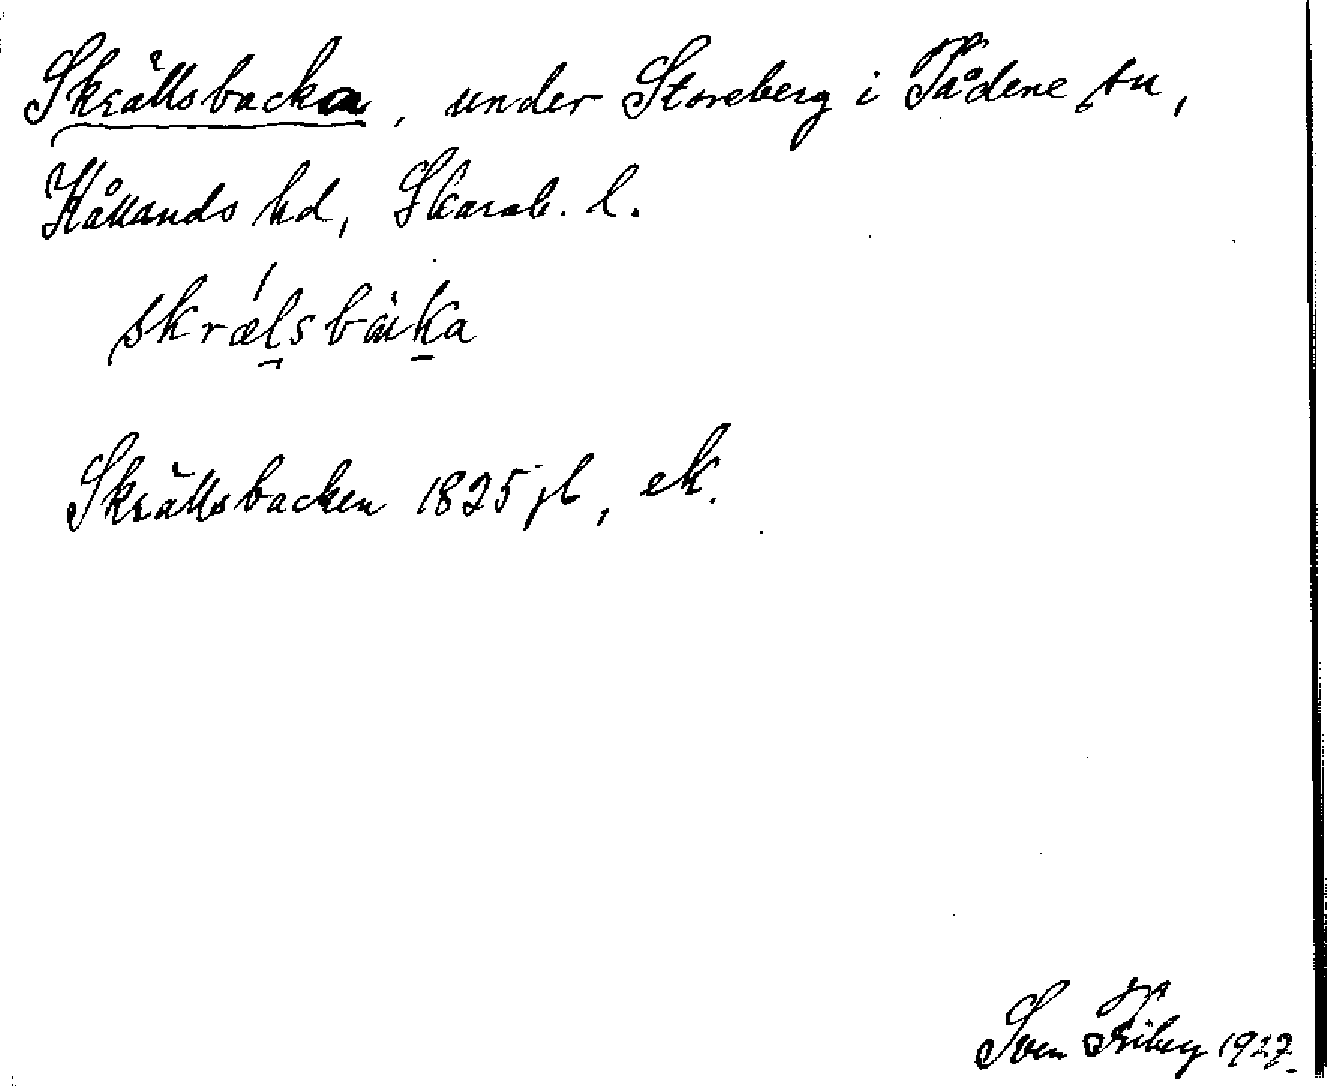 Skrällsbacka, under Storeberg i Tådene sn,
Kållands hd, Skarab. l.
skrælsbàka
Skrällsbacken 1825 jb, ek.
Sven Friberg 1927.